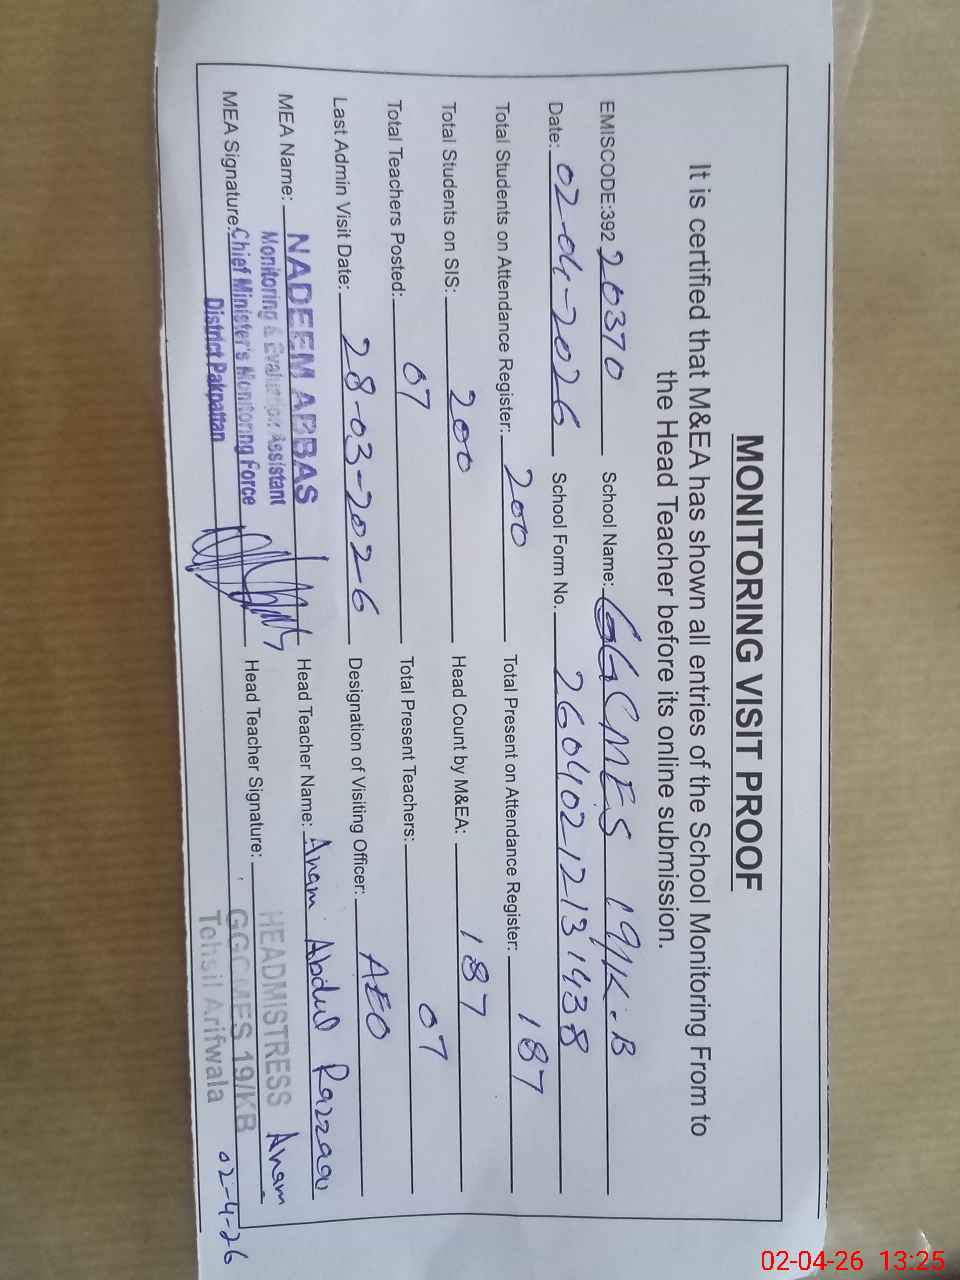 MONITORING VISIT PROOF
It is certified that M&EA has shown all entries of the School Monitoring From to
the Head Teacher before its online submission.
EMISCODE:392 20370 School Name: GGCMES 19/K.B
Date: 02-04-2026 School Form No. 26040212131438
Total Students on Attendance Register: 200 Total Present on Attendance Register: 187
Total Students on SIS: 200 Head Count by M&EA: 187
Total Teachers Posted: 07 Total Present Teachers: 07
Last Admin Visit Date: 28-03-2026 Designation of Visiting Officer: AEO
MEA Name: NADEEM ABBAS Head Teacher Name: Anam Abdul Razzaq
Monitoring & Evaluation Assistant
MEA Signature: Chief Minister's Monitoring Force Head Teacher Signature: Anam
District Pakpattan
HEADMISTRESS
GGCMES 19/KB
Tehsil Arifwala
02-4-26
02-04-26 13:25